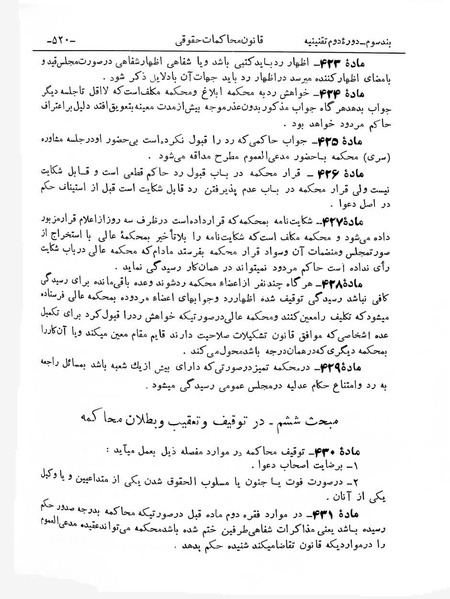 بند سوم ـ دورهٔ دوم تقنینیه قانون محاکمات حقوقی ـ۵۲۰ـ
مادهٔ ۴۲۳ـ اظهار رد باید کتبی باشد ویا شفاهی اظهار شفاهی در صورت مجلس قید و
بامضای اظهار کننده میرسد در اظهار رد باید جهات آن با دلایل ذکر شود .
مادهٔ ۴۲۴ـ خواهش رد به محکمه ابلاغ ومحکمه مکلف است که لااقل تا جلسه دیگر
جواب بدهد هر گاه جواب مذکور بدون عذر موجه بیش از مدت معینه بتعویق افتد دلیل بر اعتراف
حاکم مردود خواهد بود .
مادهٔ ۴۲۵ـ جواب حاکمی که رد را قبول نکرده است بی حضور او در جلسه مشاوره
(سری) محکمه با حضور مدعی العموم مطرح مداقه می‌شود .
مادهٔ ۴۲۶ـ قرار محکمه در باب قبول رد حاکم قطعی است و قابل شکایت
نیست ولی قرار محکمه در باب عدم پذیرفتن رد قابل شکایت است قبل از استیناف حکم
در اصل دعوا .
مادهٔ ۴۲۷ـ شکایت نامه بمحکمه که قرار داده است در ظرف سه روز از اعلام قرار مزبور
داده می‌شود و محکمه مکلف است که شکایت نامه را بلا تأخیر بمحکمهٔ عالی با استخراج از
صورتمجلس ومنضمات آن وسواد قرار محکمه بفرستد مادام که محکمه عالی در باب شکایت
رأی نداده است حاکم مردود نمیتواند در همان کار رسیدگی نماید .
مادهٔ ۴۲۸ـ هر گاه چند نفر از اعضاء محکمه رد شوند وعده باقی مانده برای رسیدگی
کافی نباشد رسیدگی توقیف شده اظهار رد وجوابهای اعضاء مردوده بمحکمه عالی فرستاده
میشود که تکلیف را معین کنند ومحکمه عالی در صورتیکه خواهش رد را قبول کرد برای تکمیل
عده اشخاصی که موافق قانون تشکیلات صلاحیت دارند قایم مقام معین میکند ویا آن کار را
بمحکمه دیگری که در همان درجه باشد محول می کند .
مادهٔ ۴۲۹ـ در محکمه تمیز در صورتی که دارای بیش از یک شعبه باشد بمسائل راجعه
به رد وامتناع حکام عدلیه در مجلس عمومی رسیدگی میشود .
مبحث ششم ـ در توقیف و تعقیب و بطلان محاکمه
مادهٔ ۴۳۰ـ توقیف محاکمه در موارد مفصله ذیل بعمل میآید :
۱ـ برضایت اصحاب دعوا .
۲ـ در صورت فوت یا جنون یا مسلوب الحقوق شدن یکی از متداعیین و یا وکیل
یکی از آنان .
مادهٔ ۴۳۱ـ در موارد فقره دوم ماده قبل در صورتیکه محاکمه بدرجه صدور حکم
رسیده باشد یعنی مذاکرات شفاهی طرفین ختم شده باشد محکمه می تواند عقیده مدعی العموم
را در مواردیکه قانون تقاضا میکند شنیده حکم بدهد .